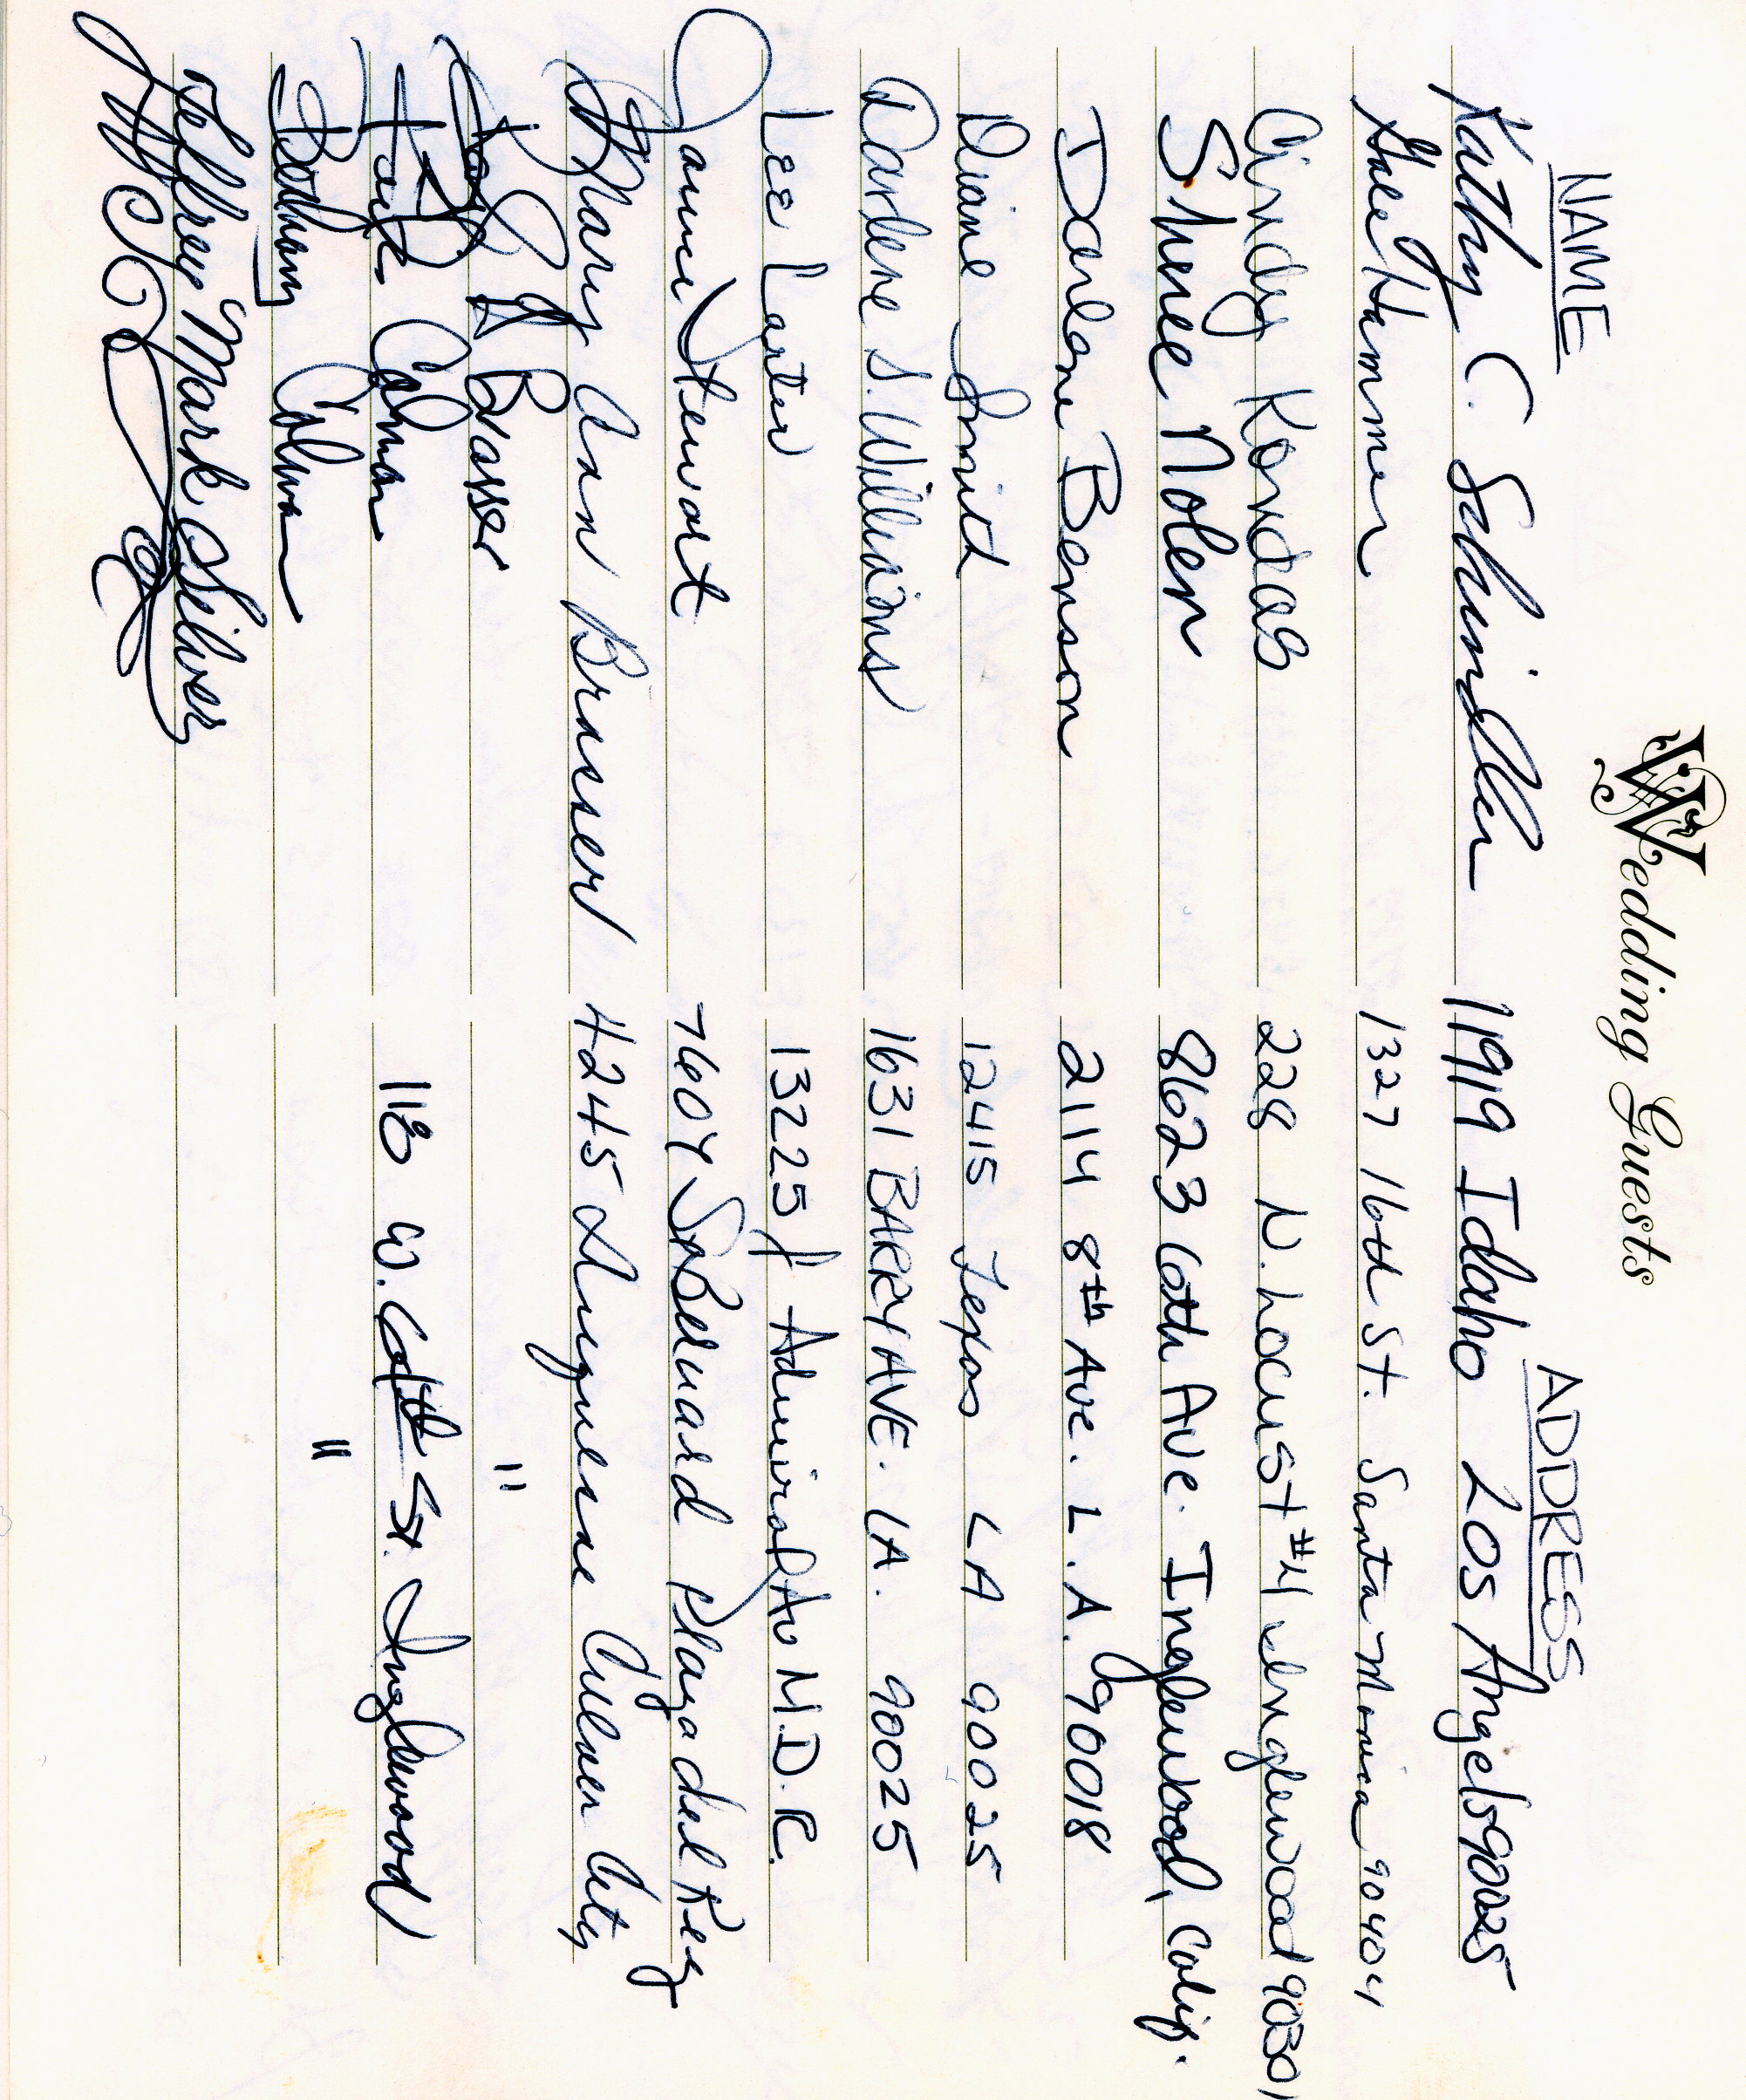 Wedding Guests
NAME ADDRESS
Kathy C. Schindller 11919 Idaho Los Angels 90025
Gale Hammer 1327 16th St. Santa Monica 90404
Cindy Kondas 228 N. Locust #4 Inglewood 90301
Sheree Nolen 8623 6th Ave. Inglewood, Calif.
Darlene Benson 2114 8th Ave. L.A. 90018
Diane Smith 12415 Texas LA 90025
Darlene S. Williams 1631 BARRY AVE. LA. 90025
Lee Larter 13225 Admiral Av M.D.R.
Janie Stewart 7607 Boluard Playa del Rey
Mary Ann Brasser 4245 Duquesne Culver City
Brasser "
Colman 118 W. 64th St. Inglewood
Bethany Colman "
Jeffrey Mark Silver